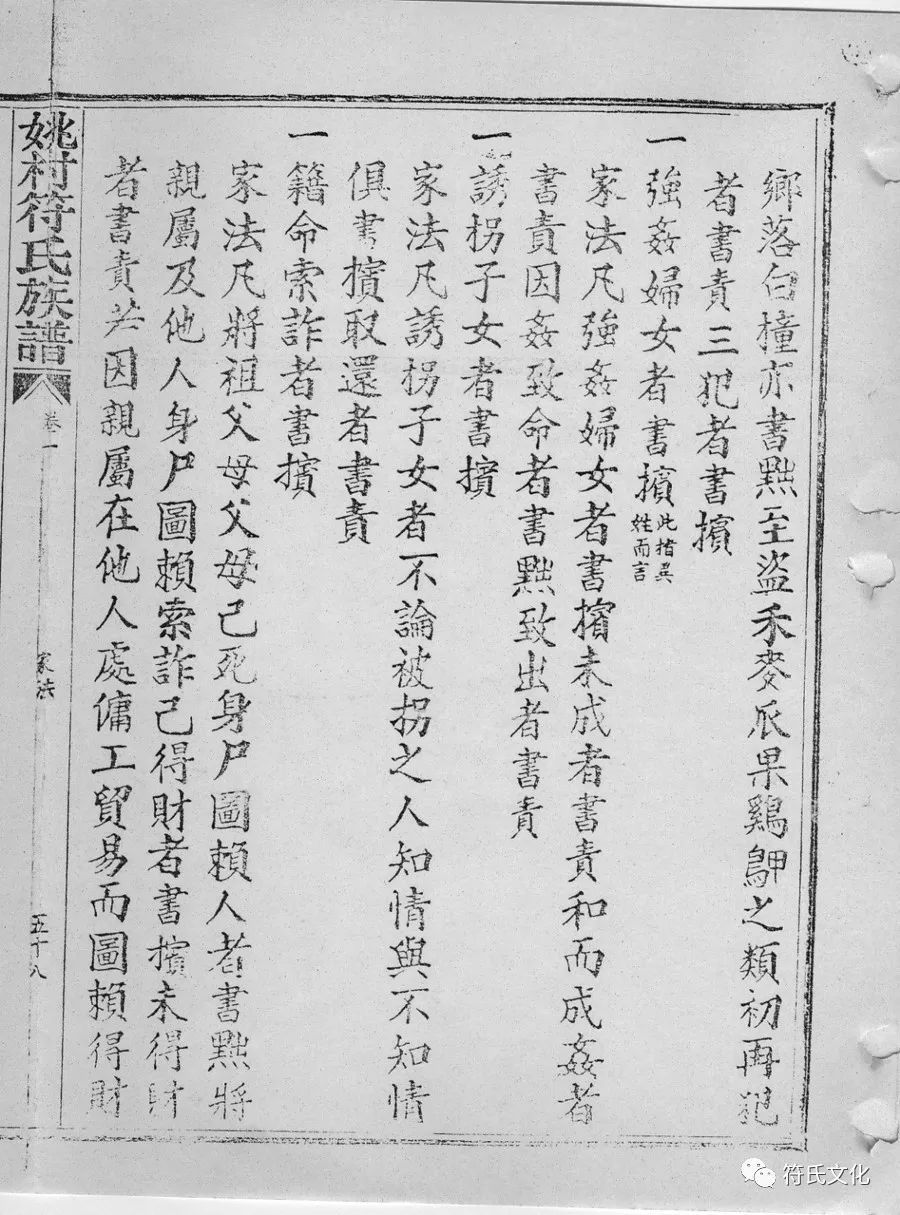 鄉落白撞亦書黜至盜禾麥瓜果鷄鴨之類初再犯
者書責三犯者書擯
一強姦婦女者書擯此指異
姓而言
家法凡強姦婦女者書擯未成者書責和而成姦者
書責因姦致命者書黜致出者書責
一誘拐子女者書擯
家法凡誘拐子女者不論被拐之人知情與不知情
俱書擯取還者書責
一籍命索詐者書擯
家法凡將祖父母父母己死身尸圖賴人者書黜將
親屬及他人身尸圖賴索詐己得財者書擯未得財
者書責若因親屬在他人處傭工貿易而圖賴得財
姚村符氏族譜
卷一
家法
五十八
符氏文化